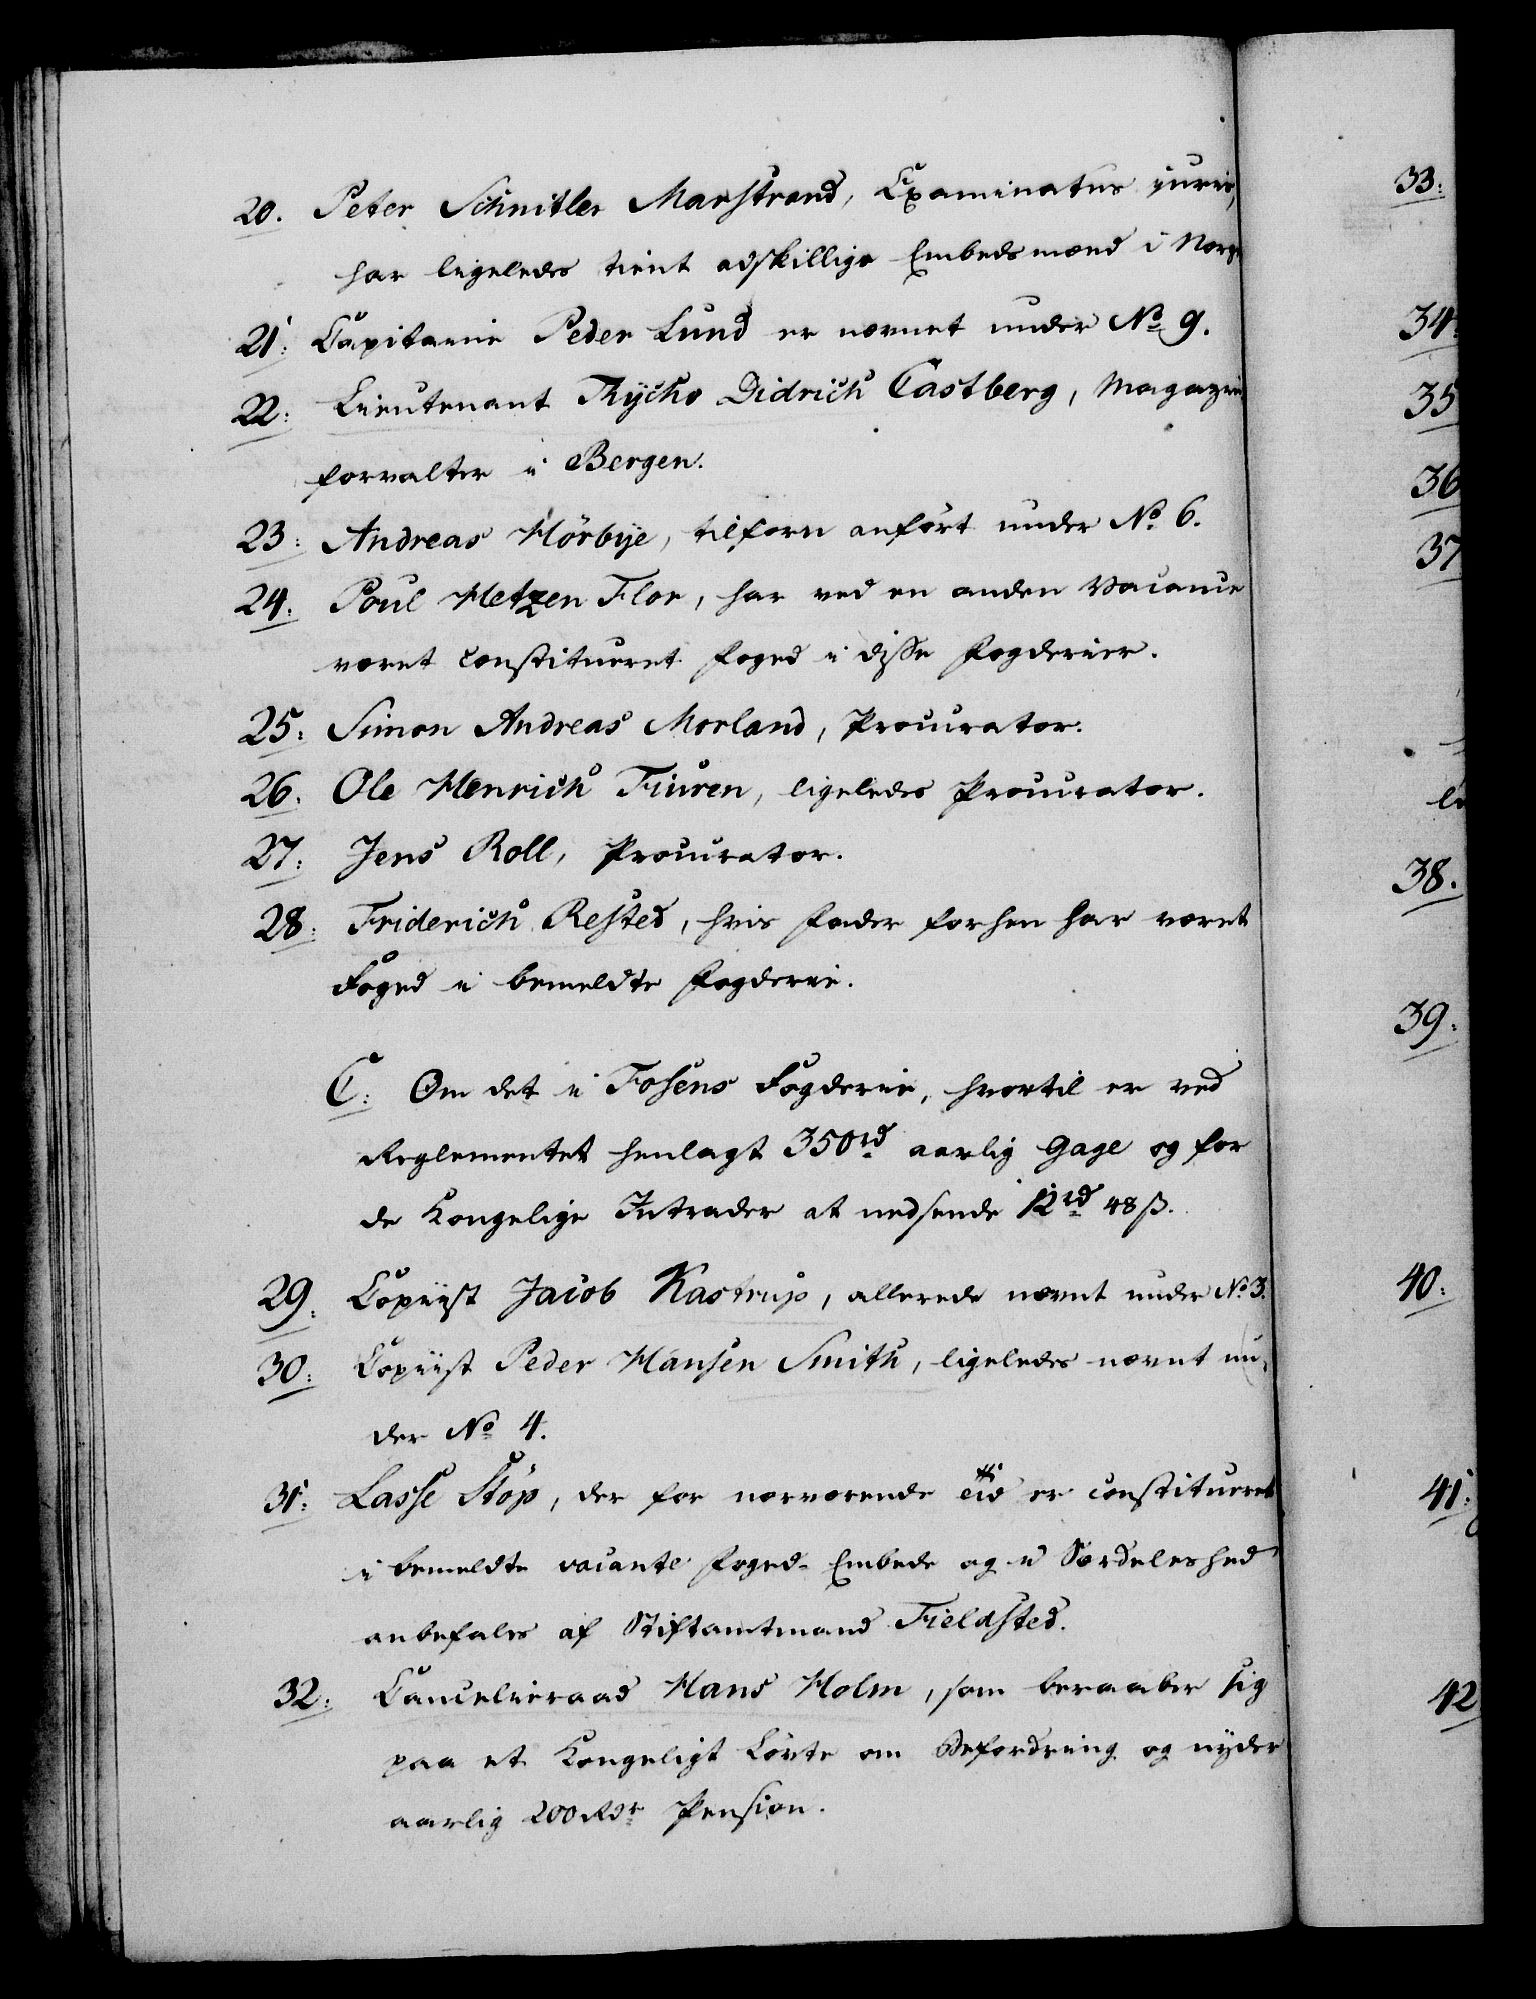 20. Peter Schnitler Marstrand, Examinatus juris,
har ligeledes tient adskillige Embedsmænd i Norge
21: Capitaine Peder Lund er nævnet under No 9.
22: Lieutenant Thycho Didrich Castberg, Magazin
forvalter i Bergen.
23: Andreas Hörbye, tilforn anført under No. 6.
24: Poul Hetzen Flor, har ved en anden Vacance
været constitueret Foged i disse Fogderier.
25: Simon Andreas Morland, Procurator.
26. Ole Henrich Fiuren, ligeledes Procurator.
27: Jens Roll, Procurator.
28: Friderich Rested, hvis Fader forhen har været
Foged i bemeldte Fogderie.
C: Om det i Fosens Fogderie, hvortil er ved
Reglementet henlagt 350rd aarlig Gage og for
de Kongelige Intrader at nedsende 12rd 48 ß.
29: Copiist Jacob Kastrup, allerede nævnt under No. 3.
30: Copiist Peder Hansen Smith, ligeledes nævnt un-
der No 4.
31: Lasse Stöp, der for nærværende Tid er constitueret
i bemeldte vacante Foged-Embede og i Særdeleshed
anbefales af Stiftamtmand Fieldsted.
32: Cancelieraad Hans Holm, som beraaber sig
paa et Kongeligt Løvte om Befordring og nyder
aarlig 200 Rdr Pension.
33:
34:
35
36
37
38.
39:
40:
41:
42